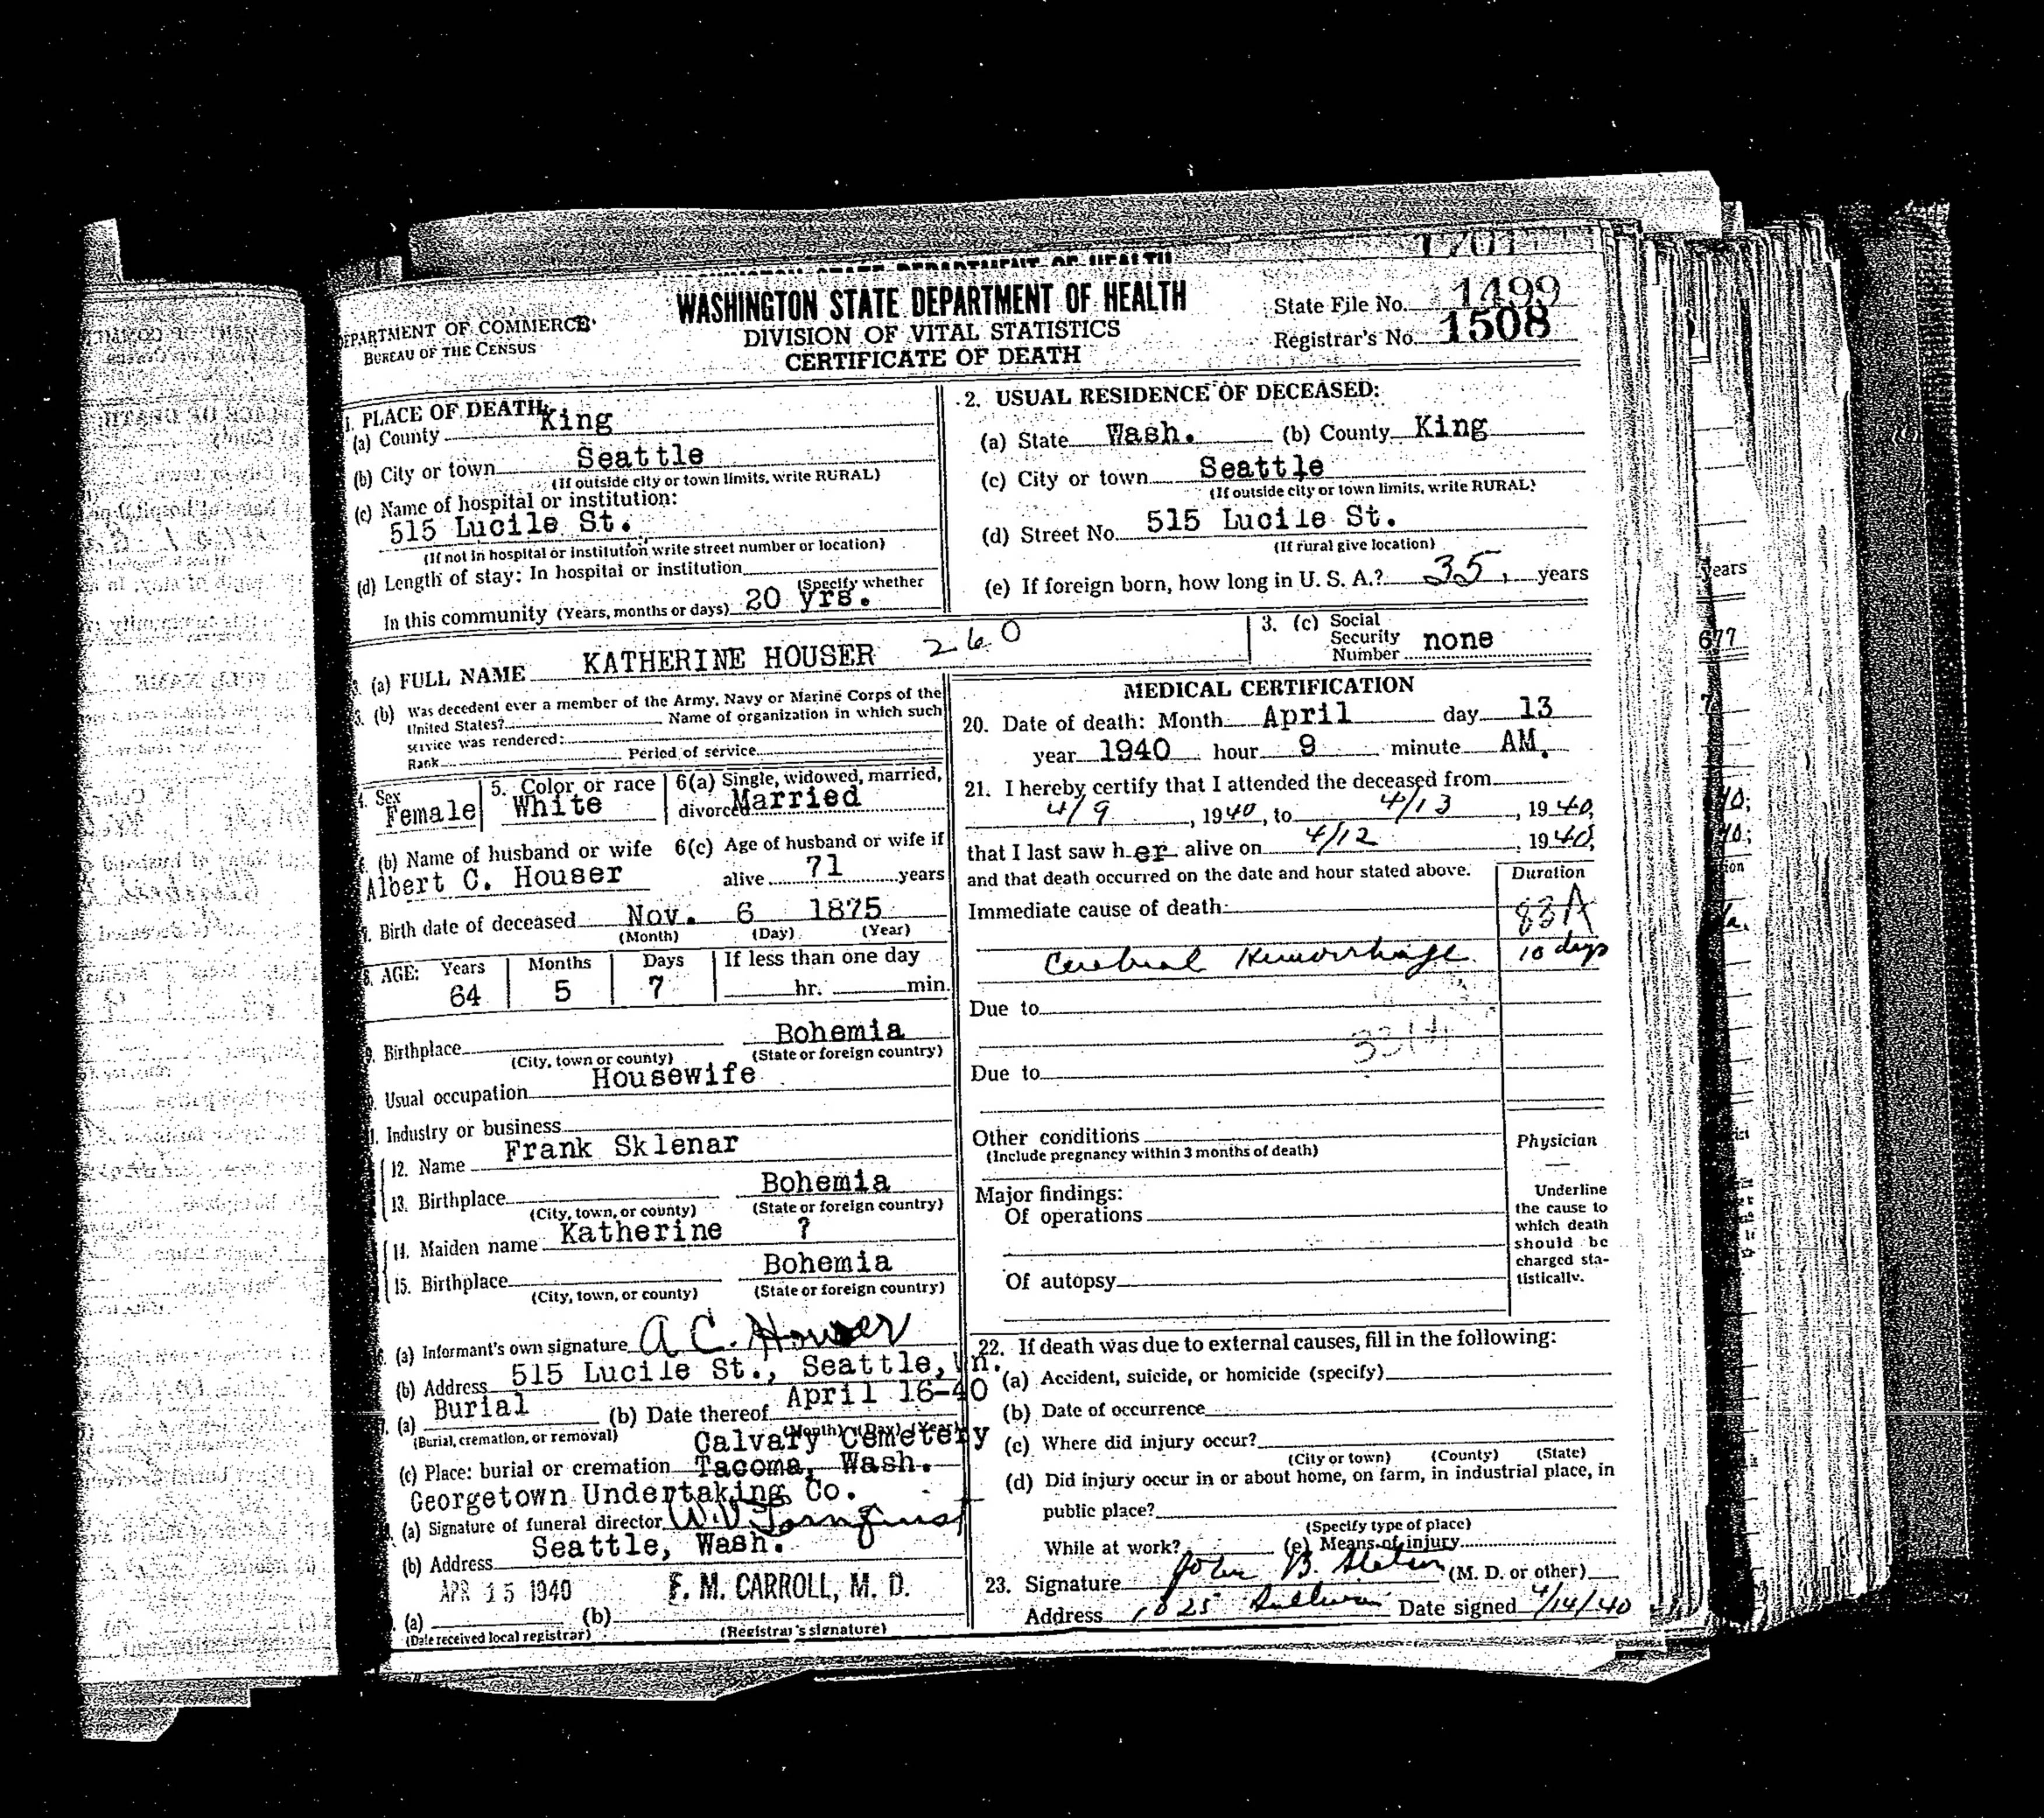 1701
WASHINGTON STATE DEPARTMENT OF HEALTH
DEPARTMENT OF COMMERCE
BUREAU OF THE CENSUS
WASHINGTON STATE DEPARTMENT OF HEALTH
DIVISION OF VITAL STATISTICS
CERTIFICATE OF DEATH
State File No. 1499
Registrar's No. 1508
1. PLACE OF DEATH:
(a) County King
(b) City or town Seattle
(If outside city or town limits, write RURAL)
(c) Name of hospital or institution:
515 Lucile St.
(If not in hospital or institution write street number or location)
(d) Length of stay: In hospital or institution
(Specify whether
In this community (Years, months or days) 20 yrs.
2. USUAL RESIDENCE OF DECEASED:
(a) State Wash. (b) County King
(c) City or town Seattle
(If outside city or town limits, write RURAL)
(d) Street No. 515 Lucile St.
(If rural give location)
(e) If foreign born, how long in U. S. A.? 35 years
3. (a) FULL NAME KATHERINE HOUSER 260
3. (c) Social
Security
Number none
3. (b) Was decedent ever a member of the Army, Navy or Marine Corps of the
United States? Name of organization in which such
service was rendered:
Rank Period of service
4. Sex Female
5. Color or race White
6(a) Single, widowed, married,
divorced Married
(b) Name of husband or wife
Albert C. Houser
6(c) Age of husband or wife if
alive 71 years
7. Birth date of deceased Nov. 6 1875
(Month) (Day) (Year)
8. AGE: Years Months Days If less than one day
64 5 7 hr. min.
9. Birthplace Bohemia
(City, town or county) (State or foreign country)
Usual occupation Housewife
Industry or business
12. Name Frank Sklenar
13. Birthplace Bohemia
(City, town, or county) (State or foreign country)
14. Maiden name Katherine ?
15. Birthplace Bohemia
(City, town, or county) (State or foreign country)
(a) Informant's own signature A C. Houser
(b) Address 515 Lucile St., Seattle, Wn.
(a) Burial (b) Date thereof April 16-40
(Burial, cremation, or removal) (Month) (Day) (Year)
Calvary Cemetery
(c) Place: burial or cremation Tacoma, Wash.
Georgetown Undertaking Co.
(a) Signature of funeral director
(b) Address Seattle, Wash.
APR 15 1940 F. M. CARROLL, M. D.
(a) (b)
(Date received local registrar) (Registrar's signature)
MEDICAL CERTIFICATION
20. Date of death: Month April day 13
year 1940 hour 9 minute AM.
21. I hereby certify that I attended the deceased from
4/9, 1940, to 4/13, 1940,
that I last saw her alive on 4/12, 1940,
and that death occurred on the date and hour stated above.
Duration
Immediate cause of death:
83A
Cerebral Hemorrhage 10 days
Due to
Due to
Other conditions
(Include pregnancy within 3 months of death)
Major findings:
Of operations
Of autopsy
Physician
Underline
the cause to
which death
should be
charged sta-
tistically.
22. If death was due to external causes, fill in the following:
(a) Accident, suicide, or homicide (specify)
(b) Date of occurrence
(c) Where did injury occur?
(City or town) (County) (State)
(d) Did injury occur in or about home, on farm, in industrial place, in
public place?
(Specify type of place)
While at work? (e) Means of injury
23. Signature John B. (M. D. or other)
Address 1025 Date signed 4/14/40
years
677